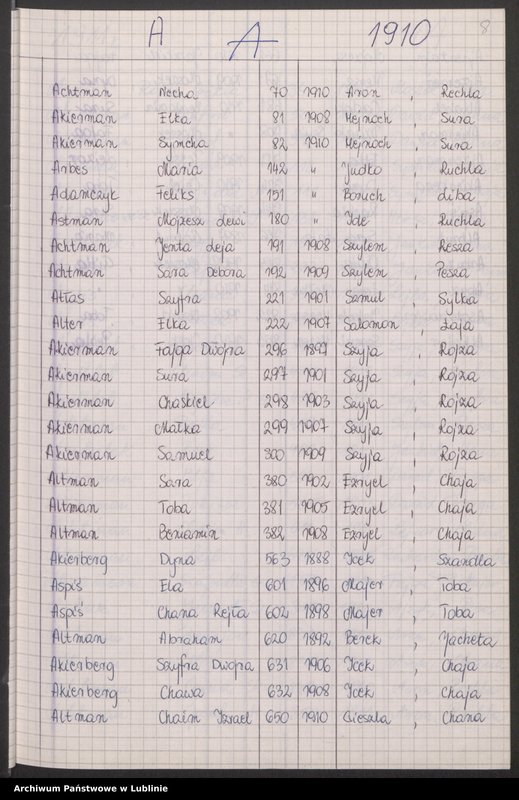 A A 1910 8
Achtman Necha 70 1910 Aron , Rechla
Akierman Etka 81 1908 Hejnoch , Sura
Akierman Symcha 82 1910 Hejnoch , Sura
Arbes Maria 142 " Judko , Ruchla
Adamczyk Feliks 151 " Boruch , Liba
Astman Mojżesz Lewi 180 " Icle , Ruchla
Achtman Jenta Leja 191 1908 Szylem , Pesza
Achtman Sara Debora 192 1909 Szylem , Pesza
Atłas Szyfra 221 1901 Samul , Sylka
Alter Etka 222 1907 Salomon , Łaja
Akierman Fajga Dwojra 296 1897 Szyja , Rojza
Akierman Sura 297 1901 Szyja , Rojza
Akierman Chaskiel 298 1903 Szyja , Rojza
Akierman Małka 299 1907 Szyja , Rojza
Akierman Samuel 300 1909 Szyja , Rojza
Altman Sara 380 1902 Ezryel , Chaja
Altman Toba 381 1905 Ezryel , Chaja
Altman Beniamin 382 1908 Ezryel , Chaja
Akierberg Dyna 563 1888 Icek , Szandla
Aspiś Ela 601 1896 Majer , Toba
Aspiś Chana Rejła 602 1898 Majer , Toba
Altman Abraham 620 1892 Berek , Jacheta
Akierberg Szyfra Dwojra 631 1906 Icek , Chaja
Akierberg Chawa 632 1908 Icek , Chaja
Altman Chaim Izrael 650 1910 Gieszla , Chana
Archiwum Państwowe w Lublinie